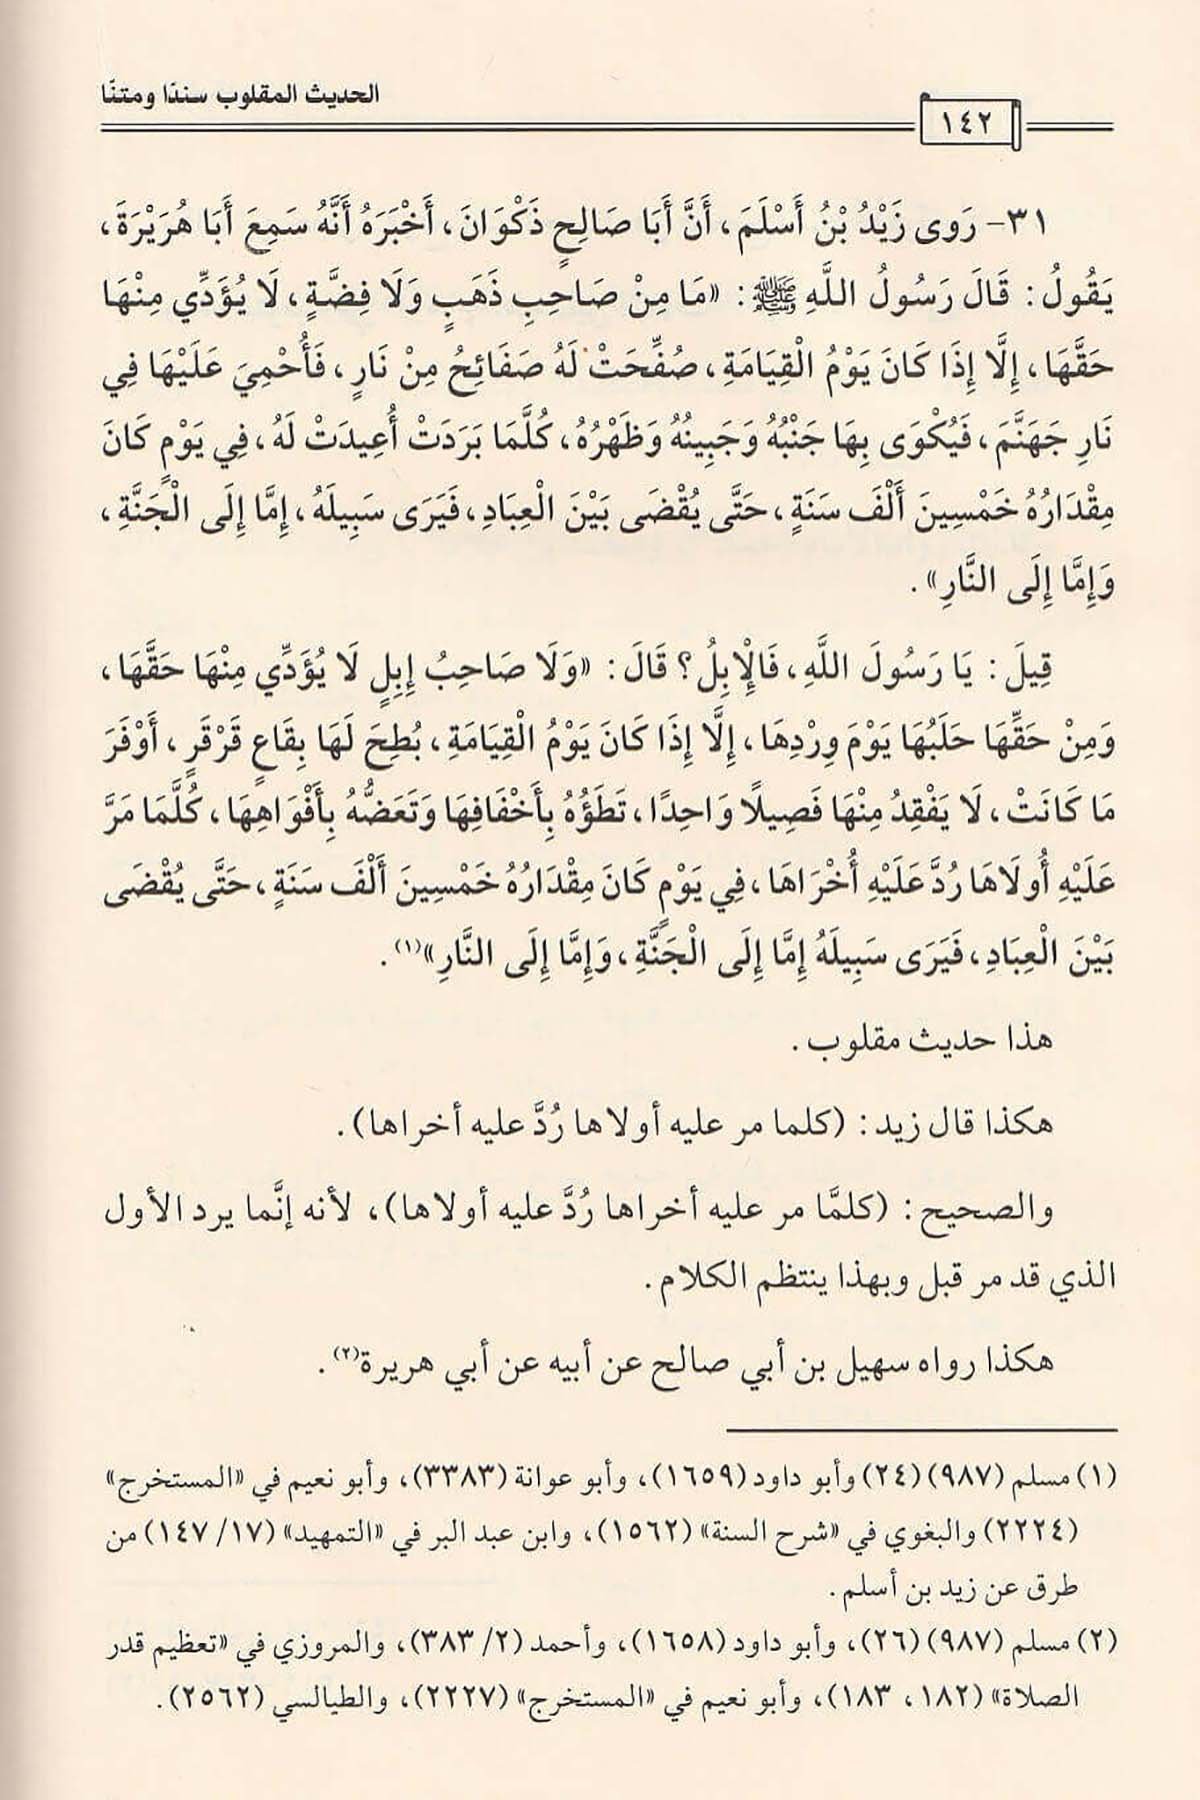 الحديث المقلوب سندًا ومتنًا
١٤٢
٣١- رَوى زَيْدُ بْنُ أَسْلَمَ، أَنَّ أَبَا صَالِحٍ ذَكْوَانَ، أَخْبَرَهُ أَنَّهُ سَمِعَ أَبَا هُرَيْرَةَ،
يَقُولُ: قَالَ رَسُولُ اللَّهِ ﷺ: «مَا مِنْ صَاحِبِ ذَهَبٍ وَلَا فِضَّةٍ، لَا يُؤَدِّي مِنْهَا
حَقَّهَا، إِلَّا إِذَا كَانَ يَوْمُ الْقِيَامَةِ، صُفِّحَتْ لَهُ صَفَائِحُ مِنْ نَارٍ، فَأُحْمِيَ عَلَيْهَا فِي
نَارِ جَهَنَّمَ، فَيُكْوَى بِهَا جَنْبُهُ وَجَبِينُهُ وَظَهْرُهُ، كُلَّمَا بَرَدَتْ أُعِيدَتْ لَهُ، فِي يَوْمٍ كَانَ
مِقْدَارُهُ خَمْسِينَ أَلْفَ سَنَةٍ، حَتَّى يُقْضَى بَيْنَ الْعِبَادِ، فَيَرَى سَبِيلَهُ، إِمَّا إِلَى الْجَنَّةِ،
وَإِمَّا إِلَى النَّارِ».
قِيلَ: يَا رَسُولَ اللَّهِ، فَالْإِبِلُ؟ قَالَ: «وَلَا صَاحِبُ إِبِلٍ لَا يُؤَدِّي مِنْهَا حَقَّهَا،
وَمِنْ حَقِّهَا حَلَبُهَا يَوْمَ وِرْدِهَا، إِلَّا إِذَا كَانَ يَوْمُ الْقِيَامَةِ، بُطِحَ لَهَا بِقَاعٍ قَرْقَرٍ، أَوْفَرَ
مَا كَانَتْ، لَا يَفْقِدُ مِنْهَا فَصِيلًا وَاحِدًا، تَطَؤُهُ بِأَخْفَافِهَا وَتَعَضُّهُ بِأَفْوَاهِهَا، كُلَّمَا مَرَّ
عَلَيْهِ أُولَاهَا رُدَّ عَلَيْهِ أُخْرَاهَا، فِي يَوْمٍ كَانَ مِقْدَارُهُ خَمْسِينَ أَلْفَ سَنَةٍ، حَتَّى يُقْضَى
بَيْنَ الْعِبَادِ، فَيَرَى سَبِيلَهُ إِمَّا إِلَى الْجَنَّةِ، وَإِمَّا إِلَى النَّارِ»(١).
هذا حديث مقلوب.
هكذا قال زيد: (كلما مر عليه أولاها رُدَّ عليه أخراها).
والصحيح: (كلمَّا مر عليه أخراها رُدَّ عليه أولاها)، لأنه إنَّما يرد الأول
الذي قد مر قبل وبهذا ينتظم الكلام.
هكذا رواه سهيل بن أبي صالح عن أبيه عن أبي هريرة(٢).
(١) مسلم (٩٨٧) (٢٤) وأبو داود (١٦٥٩)، وأبو عوانة (٣٣٨٣)، وأبو نعيم في «المستخرج»
(٢٢٢٤) والبغوي في «شرح السنة» (١٥٦٢)، وابن عبد البر في «التمهيد» (١٧/ ١٤٧) من
طرق عن زيد بن أسلم.
(٢) مسلم (٩٨٧) (٢٦)، وأبو داود (١٦٥٨)، وأحمد (٢/ ٣٨٣)، والمروزي في «تعظيم قدر
الصلاة» (١٨٢، ١٨٣)، وأبو نعيم في «المستخرج» (٢٢٢٧)، والطيالسي (٢٥٦٢).